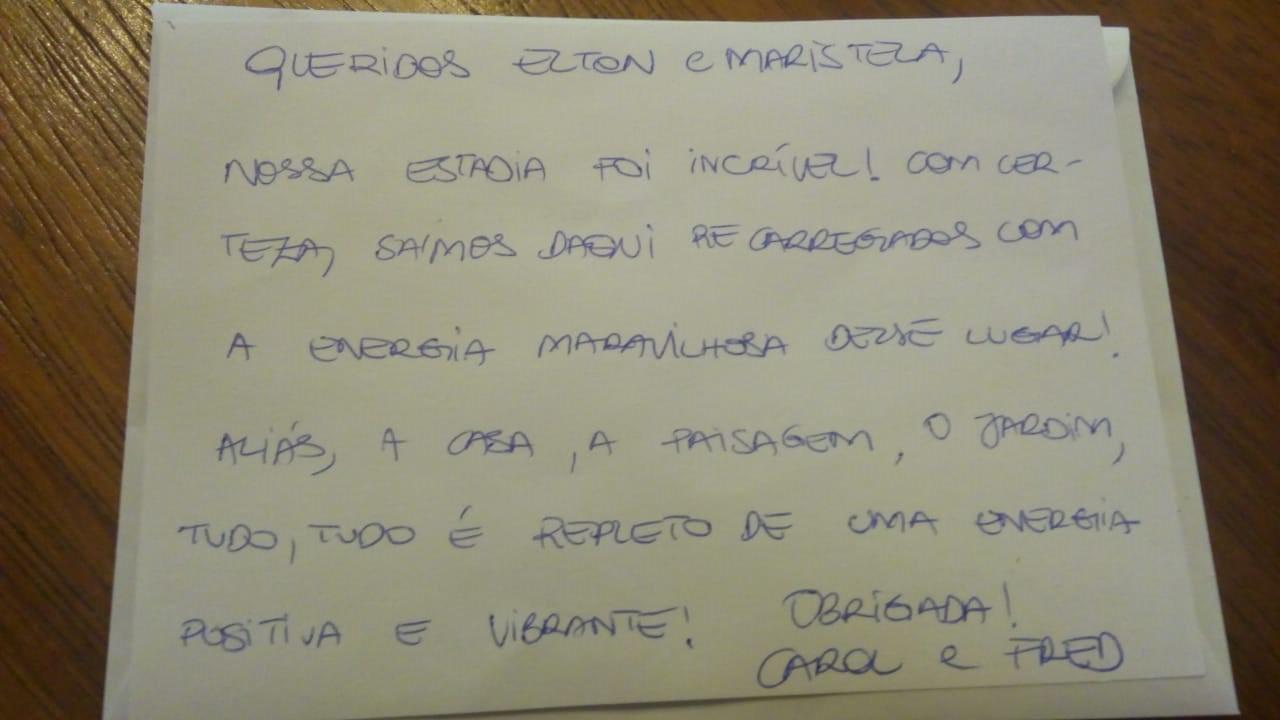 QUERIDOS ELTON e MARISTELA,
NOSSA ESTADIA FOI INCRÍVEL! COM CER-
TEZA, SAÍMOS DAQUI RECARREGADOS COM
A ENERGIA MARAVILHOSA DESSE LUGAR!
ALIÁS, A CASA, A PAISAGEM, O JARDIM,
TUDO, TUDO É REPLETO DE UMA ENERGIA
POSITIVA E VIBRANTE! OBRIGADA!
CAROL e FRED